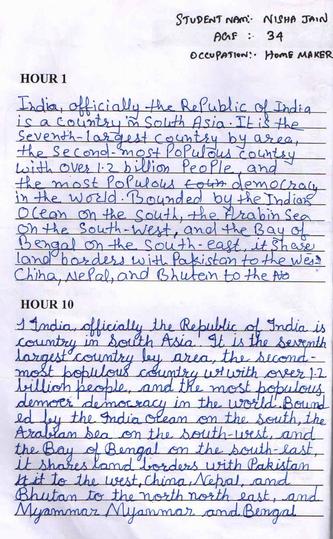 STUDENT NAM:- NISHA JAIN
AGE : 34
OCCUPATION:- HOME MAKER
HOUR 1
India, officially the Republic of India
is a country in South Asia. It is the
seventh-largest country by area,
the second-most Populous country
with over 1.2 billion People, and
the most Populous coun democracy
in the world. Bounded by the Indian
Ocean on the South, the Arabin Sea
on the South-West, and the Bay of
Bengal on the South-east, it Share
land borders with Pakistan to the West
China, Nepal, and Bhutan to the No
HOUR 10
1 India, officially the Republic of India is
country in South Asia. It is the seventh
largest country by area, the second-
most populous country wi with over 1.2
billion people, and the most populous
democr democracy in the world. Bound
ed by the India Ocean on the south, the
Arabian sea on the south-west, and
the Bay of Bengal on the south-east,
it shares land borders with Pakistan
it to the west, China, Nepal, and
Bhutan to the north north east, and
Myammar Myanmar and Bengal